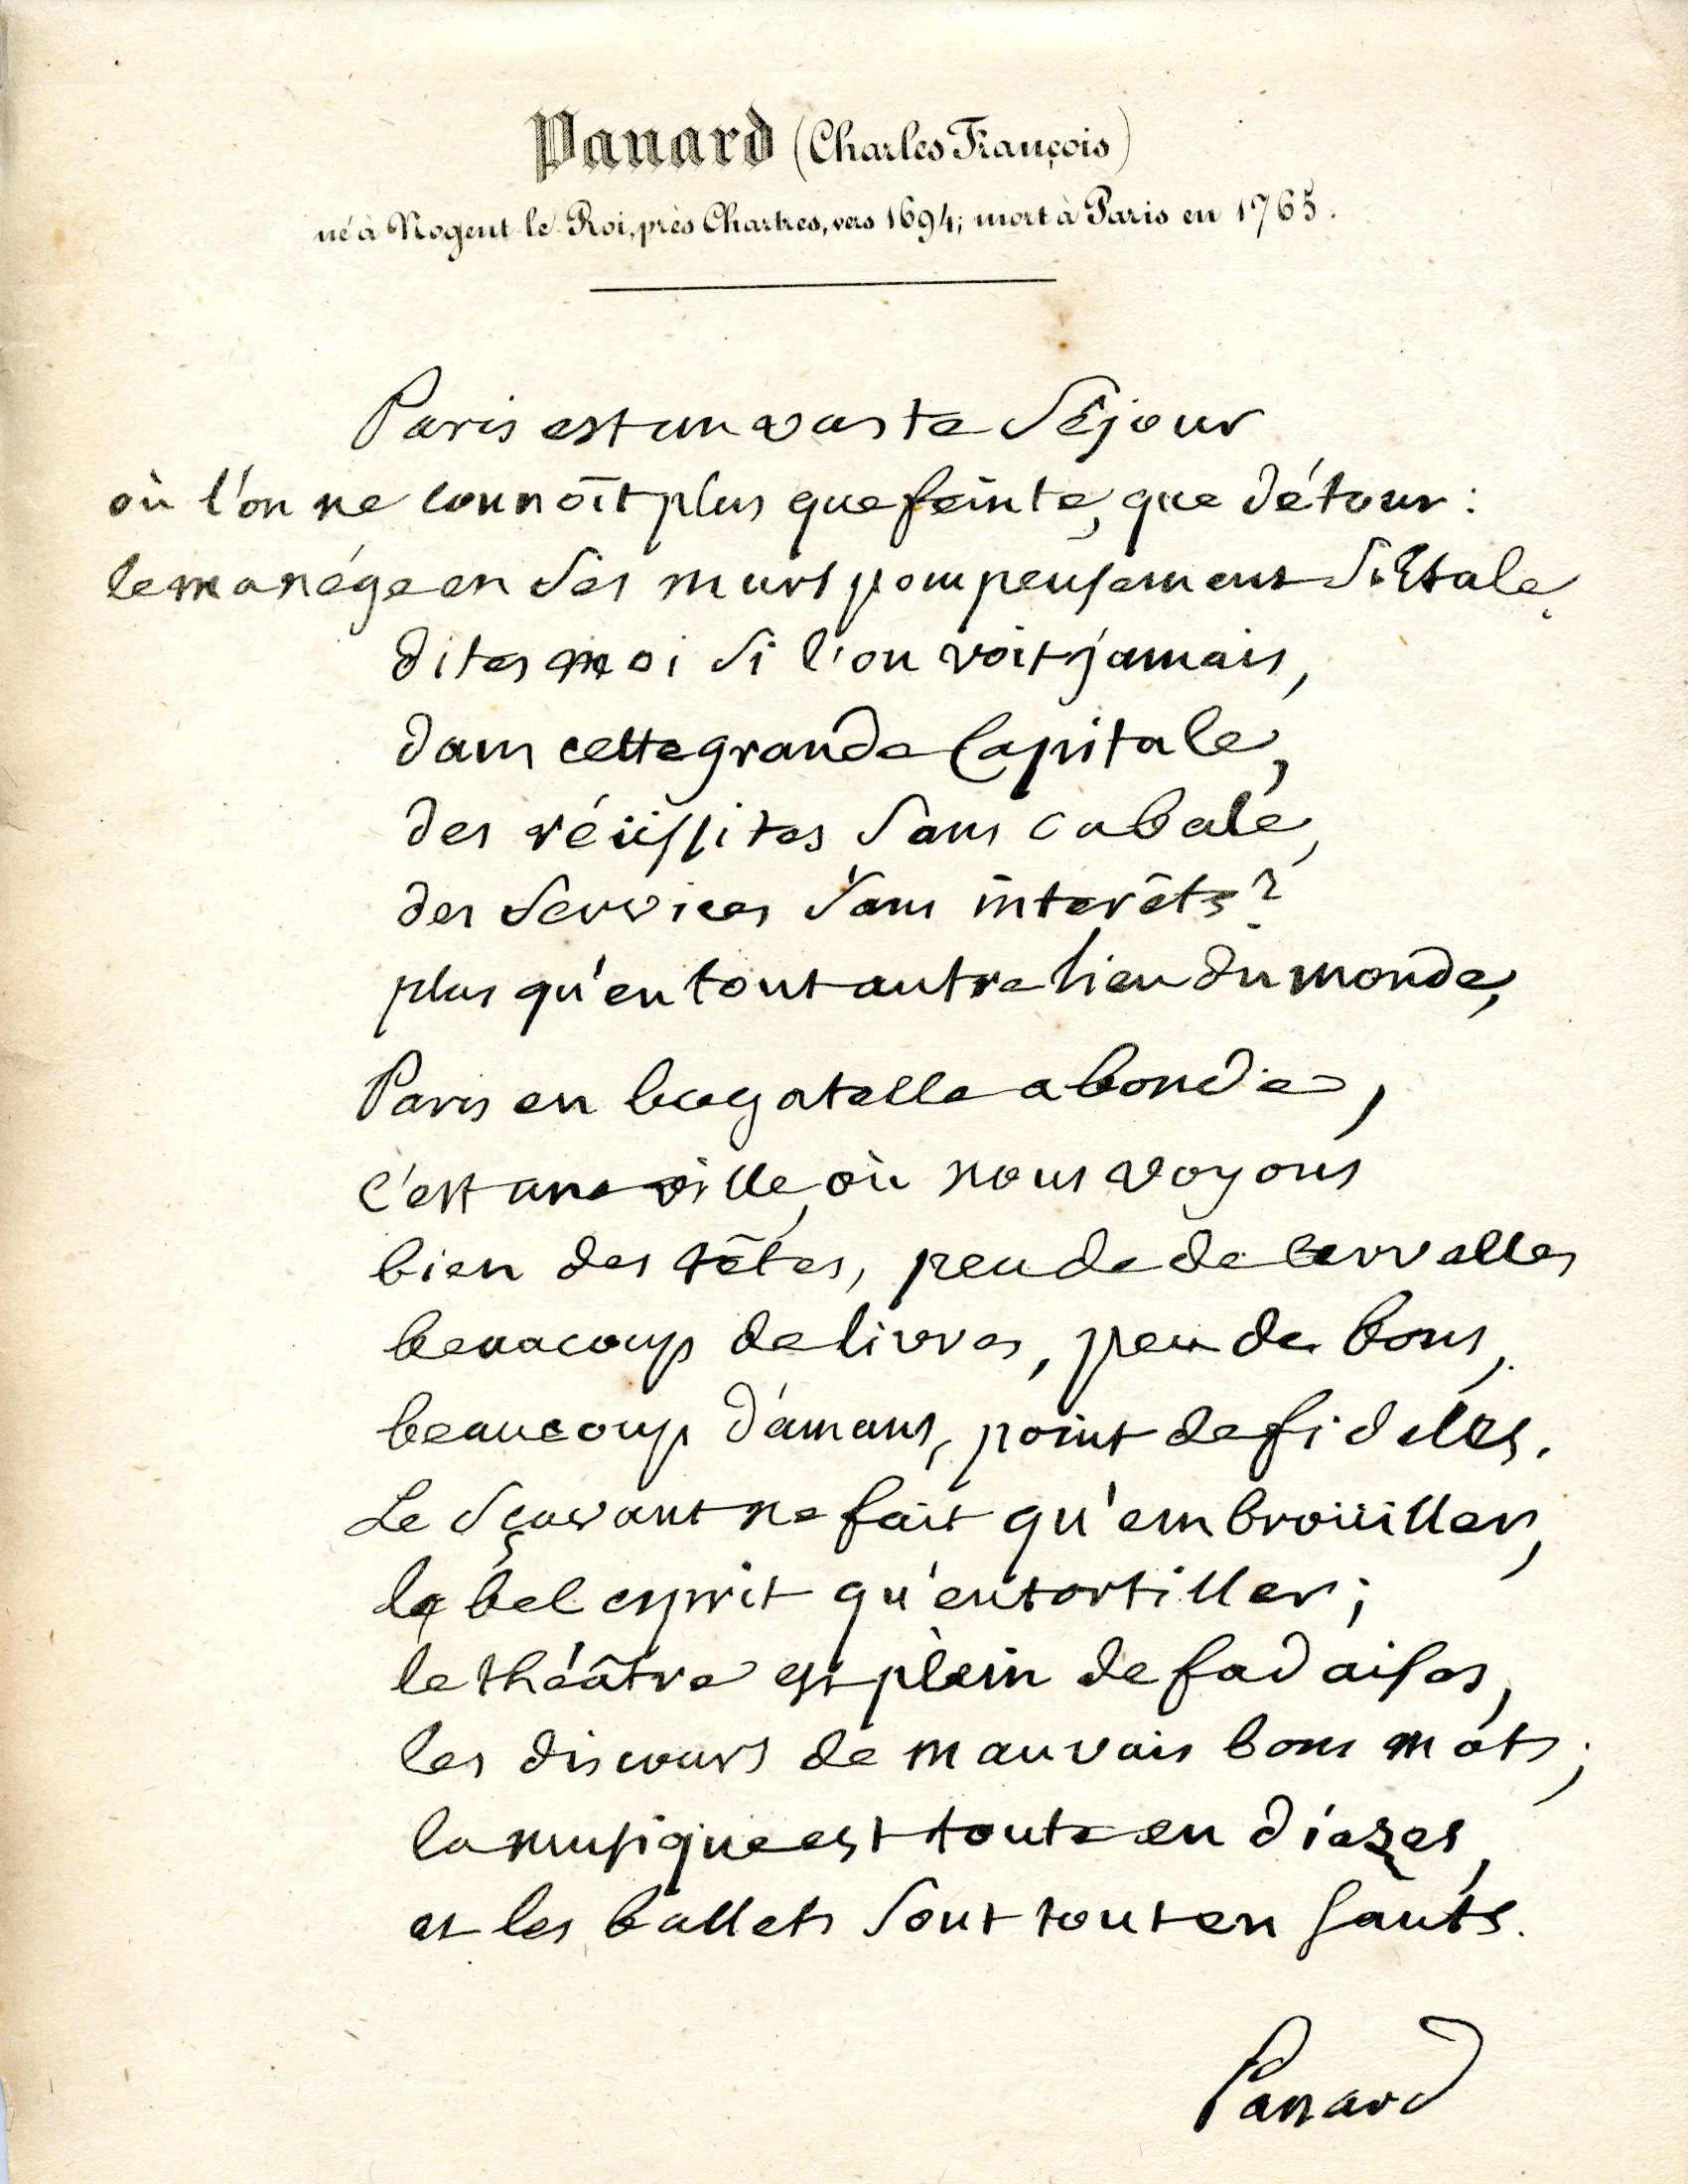 Panard (Charles François)
né à Nogent-le-Roi, près Chartres, vers 1694; mort à Paris en 1765.
Paris est un vaste séjour
où l'on ne connoît plus que feinte, que détour :
le manége en ses murs pompeusement s'Etale,
dites moi si l'on voit jamais,
dans cette grande Capitale,
des réüssites sans cabale,
des services sans interêts?
plus qu'en tout autre lieu du monde,
Paris en bagatelle abonde,
c'est une ville, où nous voyons
bien des têtes, peu de de cervelles
beaucoup de livres, peu de bons,
beaucoup d'amans, point de fidelles.
Le sçavant ne fait qu'embroüiller,
le bel esprit qu'entortiller;
le théâtre est plein de fadaises,
les discours de mauvais bons mots;
la musique est toute en diezes,
et les ballets sont tout en sauts.
Panard